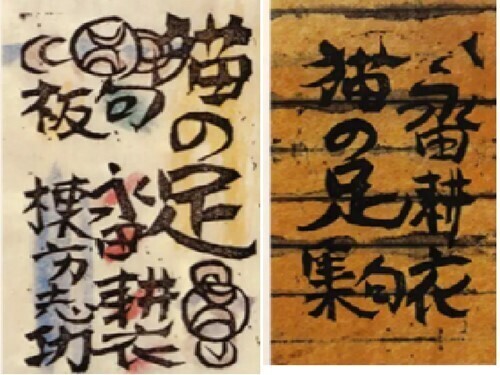 猫の足
句 永田耕衣
板 棟方志功
永田耕衣
猫の足
句集